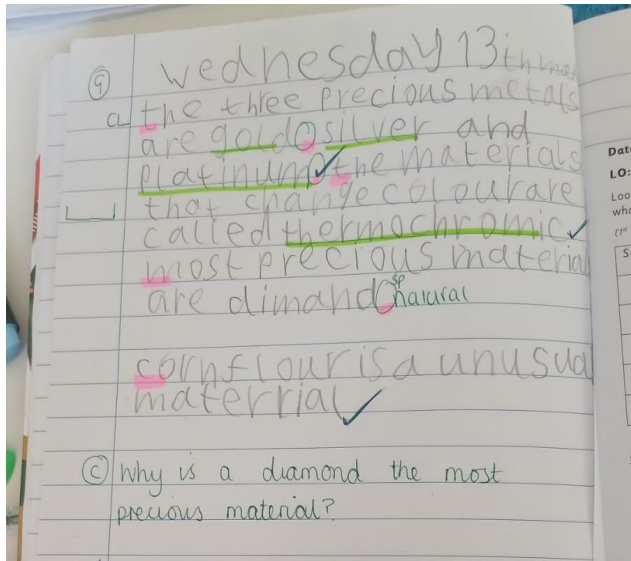 G
wednesday 13th mar
CL the three precious metals
are gold silver and
platinum the materials
that change colour are
called thermochromic
most precious material
are dimand sp natural
cornflour is a unusual
material
C Why is a diamond the most
precious material?
Date
LO:
Loo
who
S